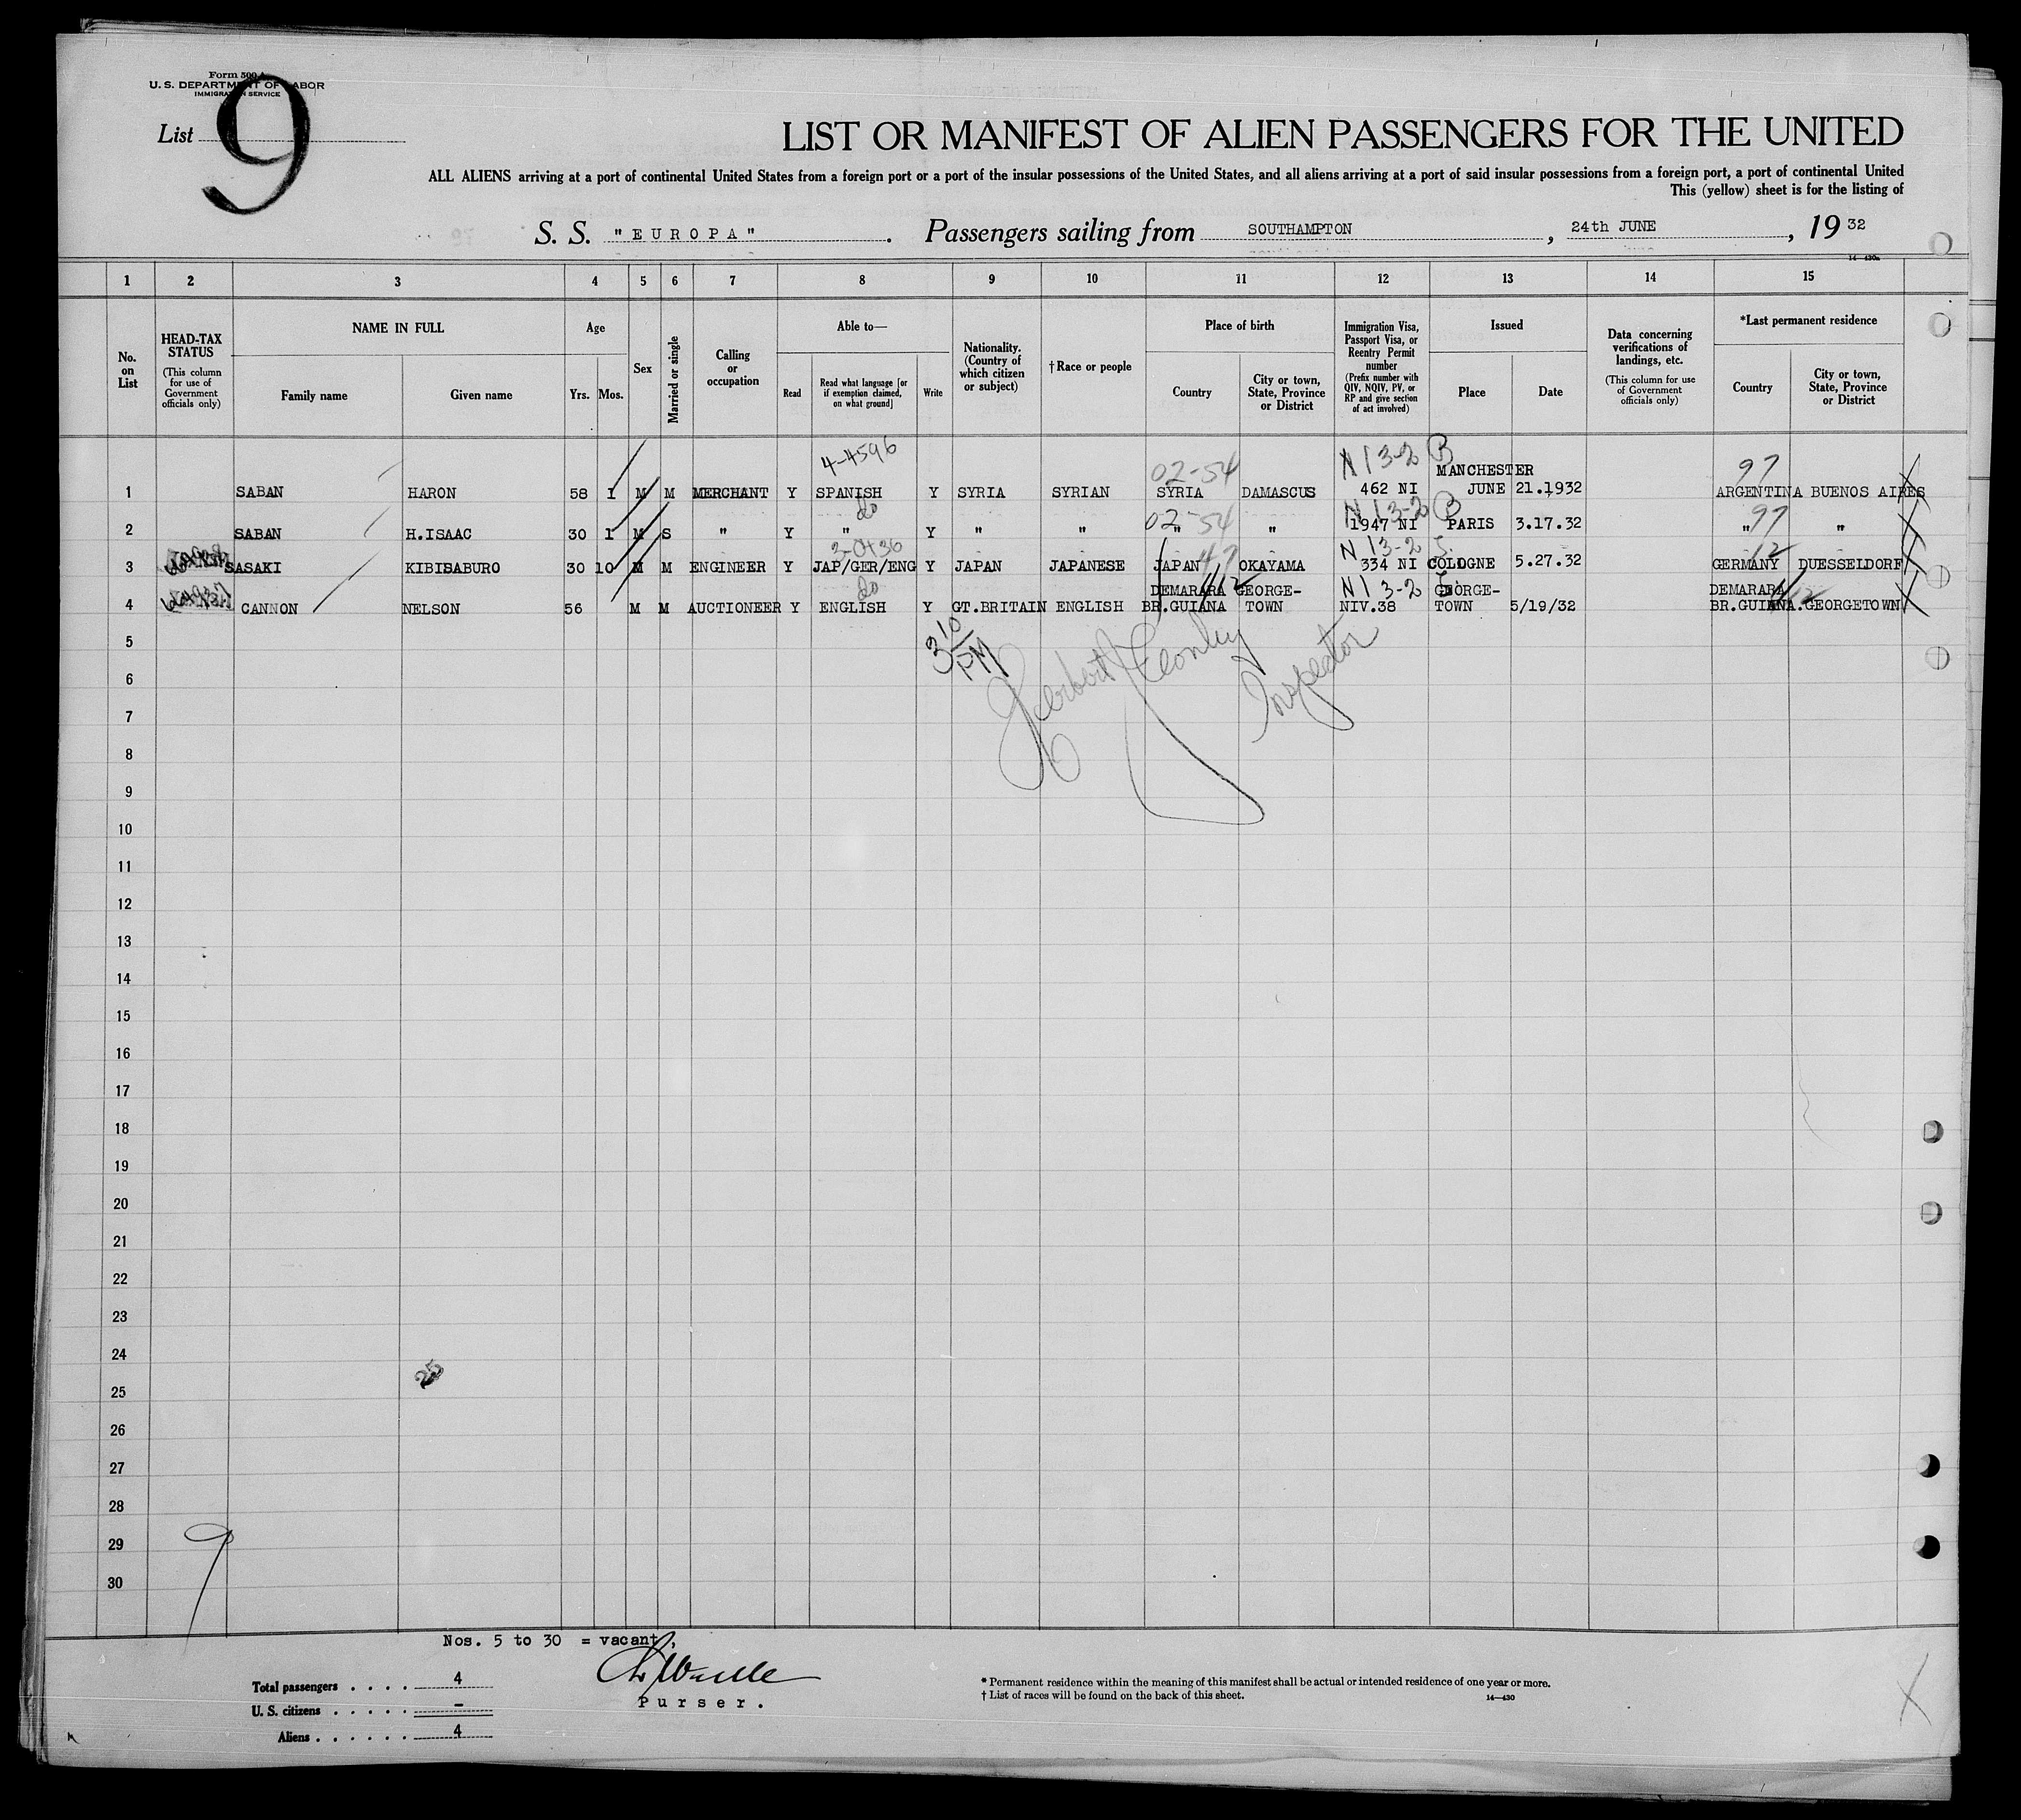 Form 500 A
U. S. DEPARTMENT OF LABOR
IMMIGRATION SERVICE
List 9
LIST OR MANIFEST OF ALIEN PASSENGERS FOR THE UNITED
ALL ALIENS arriving at a port of continental United States from a foreign port or a port of the insular possessions of the United States, and all aliens arriving at a port of said insular possessions from a foreign port, a port of continental United
This (yellow) sheet is for the listing of
S. S. "EUROPA". Passengers sailing from SOUTHAMPTON, 24th JUNE, 19 32
14—430a
1 2 3 4 5 6 7 8 9 10 11 12 13 14 15
No. on List
HEAD-TAX STATUS (This column for use of Government officials only)
NAME IN FULL Family name Given name
Age Yrs. Mos.
Sex
Married or single
Calling or occupation
Able to— Read Read what language [or if exemption claimed, on what ground] Write
Nationality. (Country of which citizen or subject)
† Race or people
Place of birth Country City or town, State, Province or District
Immigration Visa, Passport Visa, or Reentry Permit number (Prefix number with QIV, NQIV, PV, or RP and give section of act involved)
Issued Place Date
Data concerning verifications of landings, etc. (This column for use of Government officials only)
*Last permanent residence Country City or town, State, Province or District
4-4596 02-54 N 13-2 B MANCHESTER 97
1 SABAN HARON 58 1 M M MERCHANT Y SPANISH Y SYRIA SYRIAN SYRIA DAMASCUS 462 NI JUNE 21.1932 ARGENTINA BUENOS AIRES
do 02-54 N 13-2 B 97
2 SABAN H.ISAAC 30 1 M S " Y " Y " " " " 1947 NI PARIS 3.17.32 " "
3-0436 47 N 13-2 12
3 SASAKI KIBISABURO 30 10 M M ENGINEER Y JAP/GER/ENG Y JAPAN JAPANESE JAPAN OKAYAMA 334 NI COLOGNE 5.27.32 GERMANY DUESSELDORF
do DEMARARA GEORGE- N 13-2 GEORGE- DEMARARA
4 CANNON NELSON 56 M M AUCTIONEER Y ENGLISH Y GT.BRITAIN ENGLISH BR.GUIANA TOWN NIV.38 TOWN 5/19/32 BR.GUIANA.GEORGETOWN
5
3 10 PM
Inspector
6
7
8
9
10
11
12
13
14
15
16
17
18
19
20
21
22
23
24
25
26
27
28
29
30
9
Nos. 5 to 30 = vacant,
Total passengers . . . . 4
U. S. citizens . . . . . –
Aliens . . . . . . 4
Purser.
* Permanent residence within the meaning of this manifest shall be actual or intended residence of one year or more.
† List of races will be found on the back of this sheet. 14—430